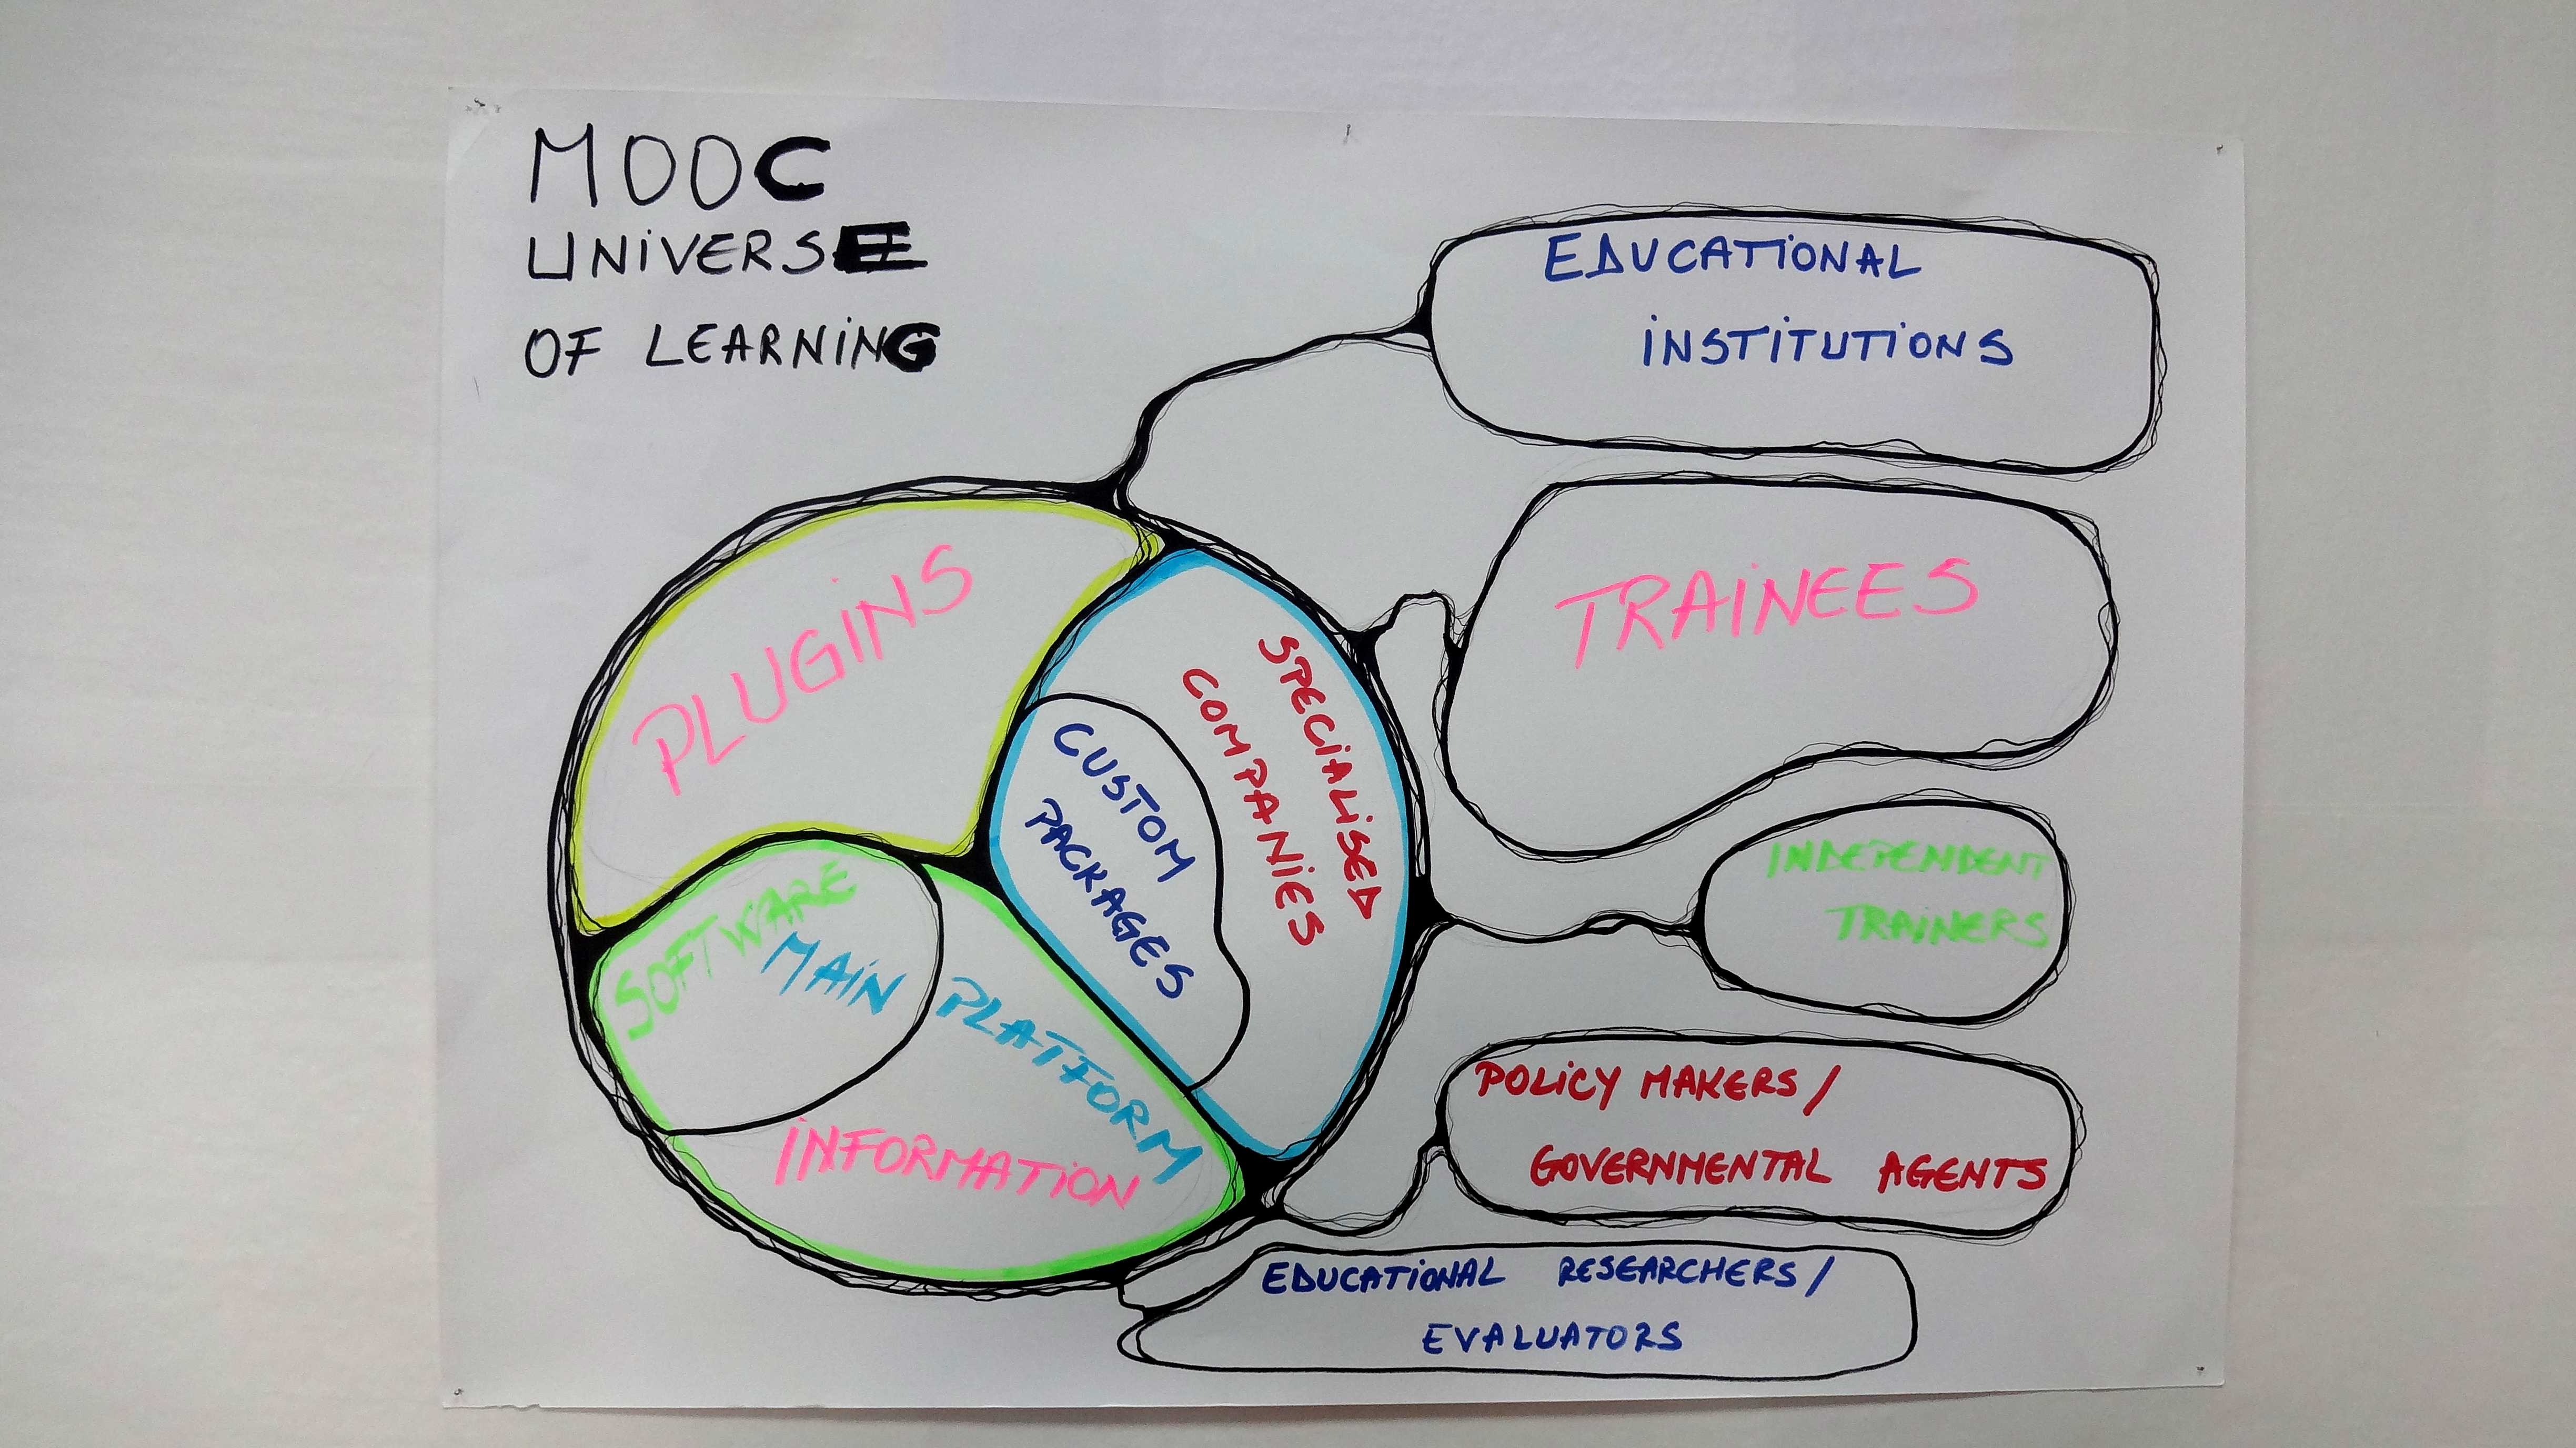 MOOC
UNIVERSE
OF LEARNING
EDUCATIONAL
INSTITUTIONS
TRAINEES
INDEPENDENT
TRAINERS
POLICY MAKERS /
GOVERNMENTAL AGENTS
EDUCATIONAL RESEARCHERS /
EVALUATORS
PLUGINS
SPECIALISED
COMPANIES
CUSTOM
PACKAGES
SOFTWARE
MAIN PLATFORM
INFORMATION